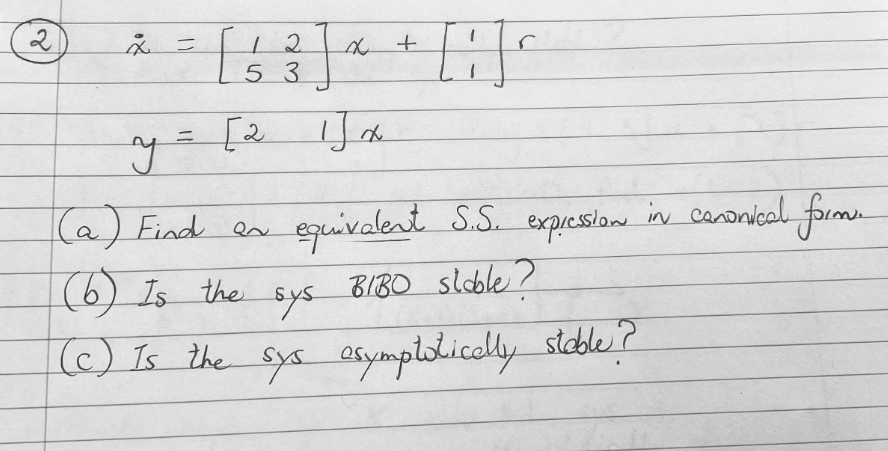 ② ẋ = [1 2 5 3] x + [1 1] r
y = [2 1] x
(a) Find an equivalent S.S. expression in canonical form.
(b) Is the sys BIBO stable?
(c) Is the sys asymptotically stable?